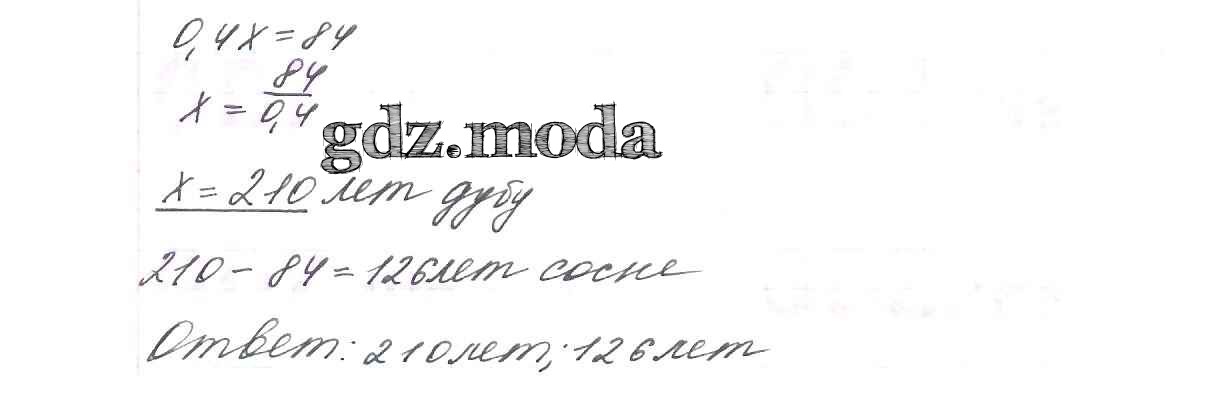 0,4x = 84
x = 84/0,4
gdz.moda
x = 210 лет дубу
210 - 84 = 126 лет сосне
Ответ: 210 лет; 126 лет